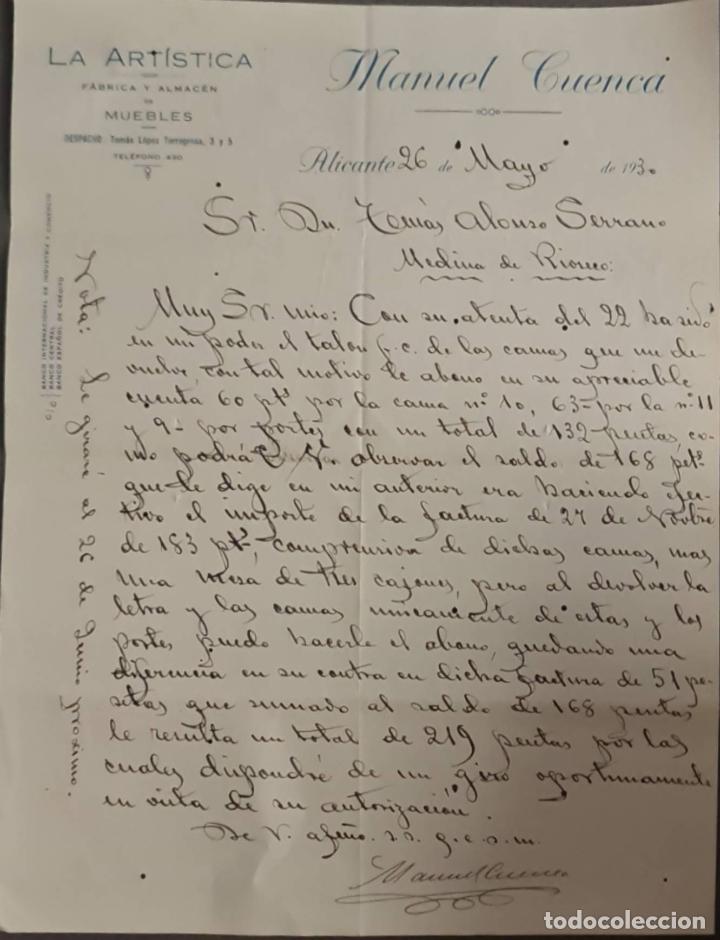 LA ARTÍSTICA
FÁBRICA Y ALMACÉN
DE
MUEBLES
DESPACHO: Tomás López Torregrosa, 3 y 5
TELÉFONO 430
Manuel Cuenca
Alicante 26 de Mayo de 1930
Sr. Dn. Tomás Alonso Serrano
Medina de Rioseco:
C/C BANCO INTERNACIONAL DE INDUSTRIA Y COMERCIO
BANCO CENTRAL
BANCO ESPAÑOL DE CRÉDITO
Muy Sr. mio: Con su atenta del 22 ha sido
en mi poder el talon f.c. de las camas que me de-
vuelve, con tal motivo le abono en su apreciable
cuenta 60 pts por la cama nº 10, 63- por la nº 11
y 9- por portes con un total de 132 pesetas, co-
mo podrá V. observar el saldo de 168 pts.
que le dige en mi anterior era haciendo efec-
tivo el importe de la factura de 27 de Novbre
de 183 pts, comprensiva de dichas camas, mas
una mesa de tres cajones, pero al devolver la
letra y las camas unicamente de estas y los
portes puedo hacerle el abono, quedando una
diferencia en su contra en dicha factura de 51 pe-
setas que sumado al saldo de 168 pesetas
le resulta un total de 219 pesetas por las
cuales dispondré de un giro oportunamente
en vista de su autorización.
De V. afmo. s.s. q.e.s.m.
Manuel Cuenca
Nota: Le giraré al 26 de Junio próximo.
todocoleccion